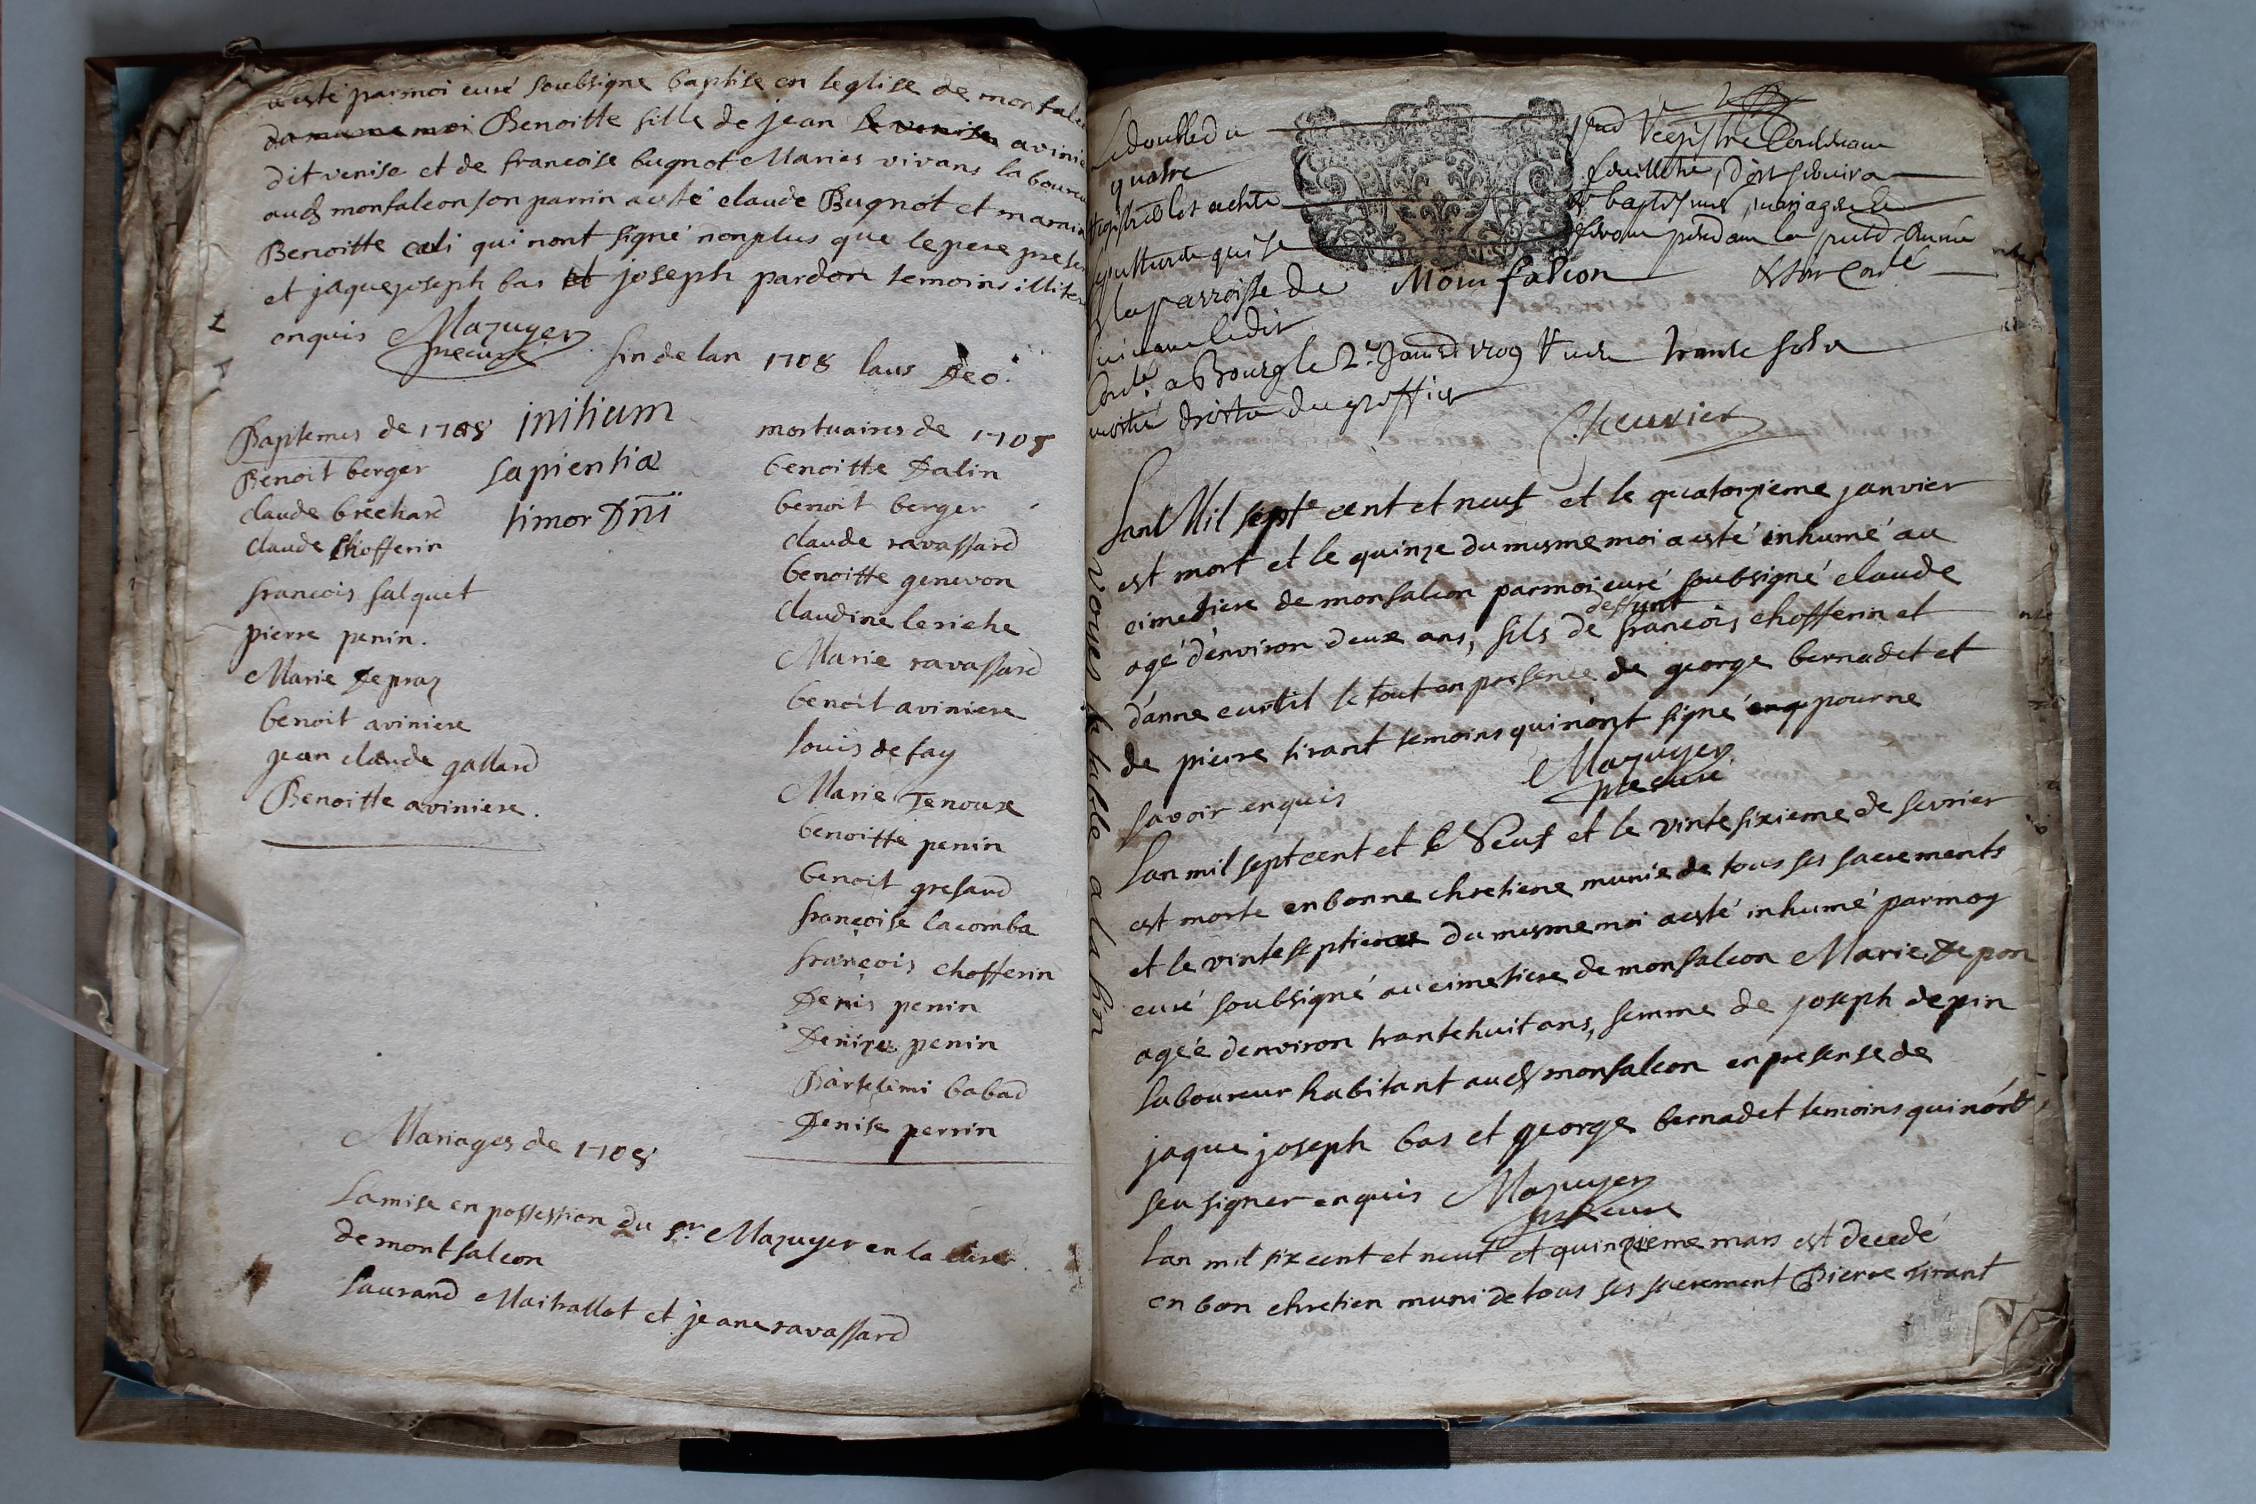 a esté par moi curé soubsigné baptisé en leglise de monfalco
du mesme moi Benoitte fille de jean le venise avinie
dit venise et de francoise bugnot Maries vivans laboureu
aud monfalcon son parrin a esté claude Bugnot et marain
Benoitte cati qui nont signé non plus que le pere presen
et jaque joseph bas et joseph pardon temoins illiter
enquis Mazuyer
p're curé
fin de lan 1708 laus Deo.
Baptemes de 1708
Benoit berger
claude brechard
claude Chofferin
francois falquet
pierre penin.
Marie Depraz
benoit aviniere
jean claude gallard
Benoitte aviniere.
initium
sapientiæ
timor Dñi
mortuaires de 1708
benoitte Dalin
benoit berger
claude ravassard
benoitte genevon
claudine leriche
Marie ravassard
benoit aviniere
louis defay
Marie Tenoux
benoitte penin
benoit gresaud
françoise lacomba
françois chofferin
Denis penin
Denize penin
Bartelemi babad
Denise perrin
Mariages de 1708
La mise en possession du sr. Mazuyer en la cure
de montfalcon
Laurand Maitrallot et jeane ravassard
Le double du
quatre
registre les actes
sepultures qui se
la parroisse de Monfalcon
suivant ledit
Cotté a Bourg le 2e Janv. 1709 trante sols
moitié droits du greffier
Cheuvier
registre contenant
feuillets, dont servira
baptesmes, mariages et
feront pendant la presd. année
voyes la table a la fin
Lant Mil sept cent et neuf et le quatorzieme janvier
est mort et le quinze du mesme moi a esté inhumé au
cimetiere de monfalcon par moi curé soubsigné claude
agé d'environ deux ans, fils de deffunt françois chofferin et
d'anne curtil le tout en presence de george bernadet et
de pierre tirant temoins qui nont signé enq pour ne
savoir enquis
Mazuyer
p're curé
Lan mil sept cent et Neuf et le vinte sixieme de fevrier
est morte en bonne chretiene munie de tous ses sacrements
et le vinte septieme du mesme moi a esté inhumé par moy
curé soubsigné au cimetiere de monfalcon Marie Depon
agéé denviron trante huit ans, femme de joseph depin
laboureur habitant aud monfalcon en presense de
jaque joseph bas et george bernadet temoins qui nont
seu signer enquis Mazuyer
p're curé
Lan mil six cent et neuf et quinzieme mars est decedé
en bon chretien muni de tous ses sacrement Pierre tirant